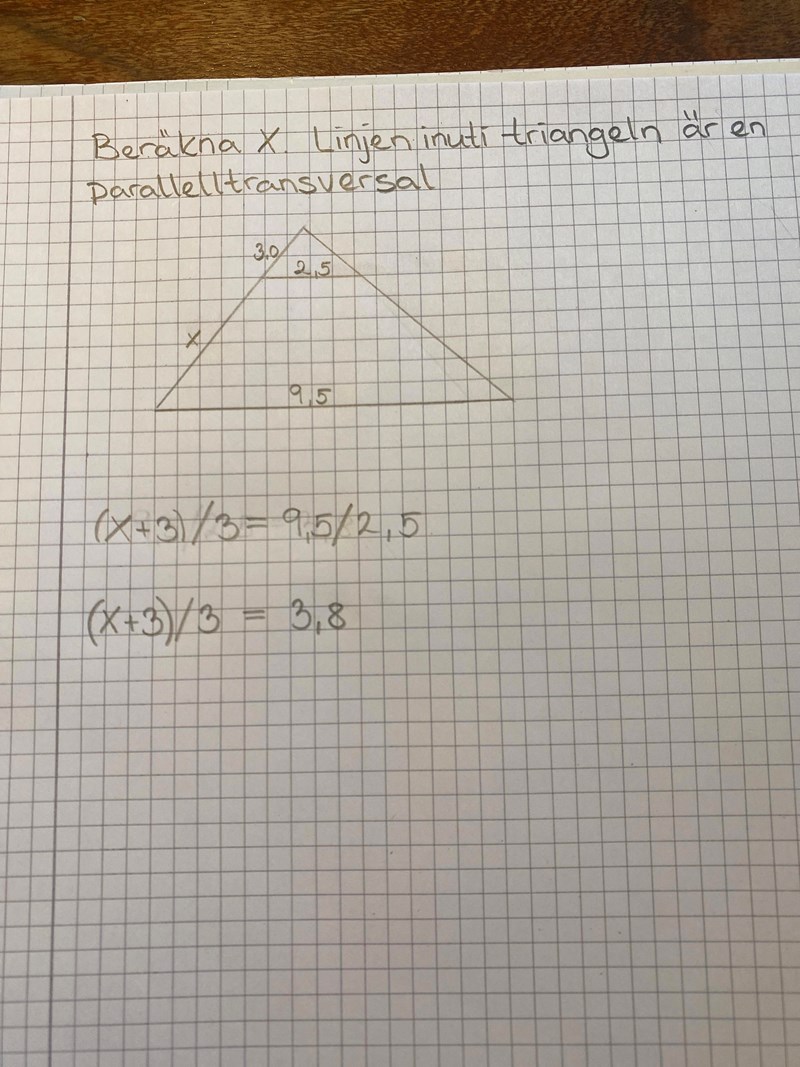 Beräkna X. Linjen inuti triangeln är en
parallelltransversal
3,0
2,5
x
9,5
(x+3)/3 = 9,5/2,5
(x+3)/3 = 3,8